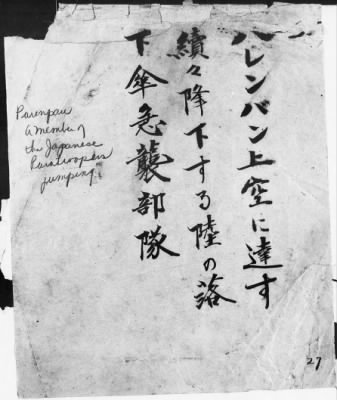 パレンバン上空に達す
續々降下する陸の落
下傘急襲部隊
Parenpau
a member of
the Japanese
Paratroopers
jumping.
27